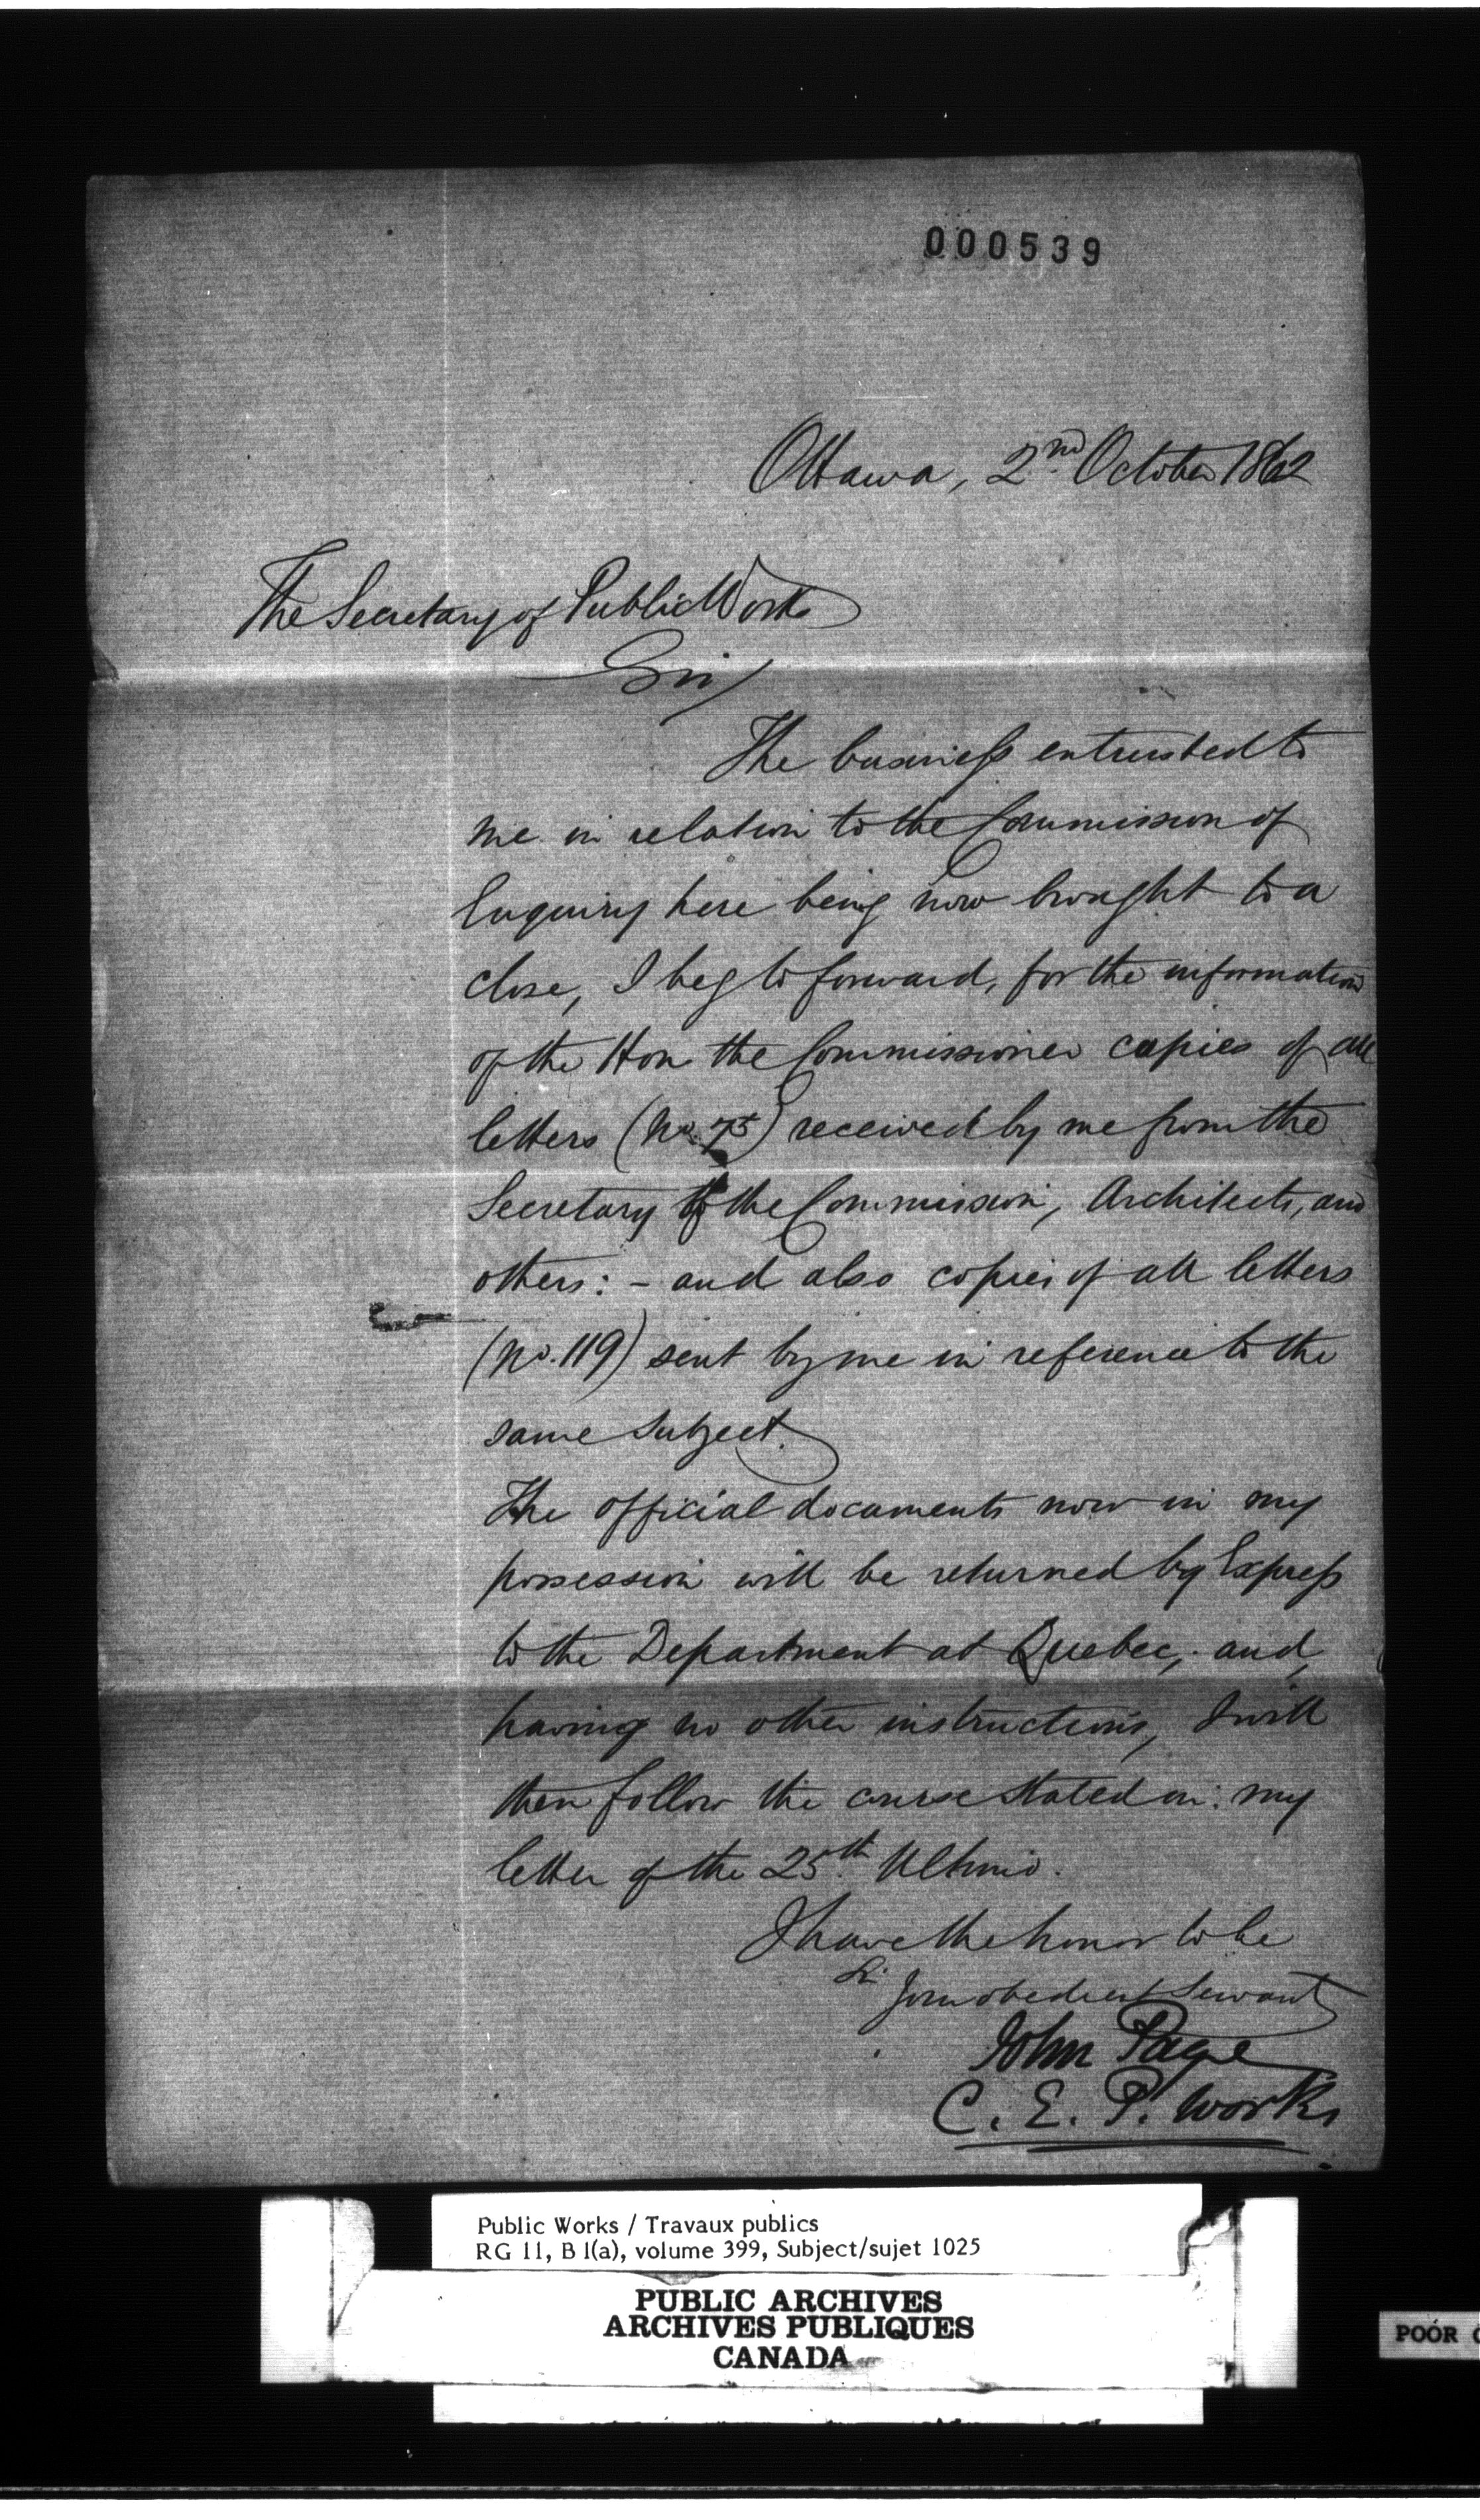 000539
Ottawa, 2nd October 1862
The Secretary of Public Works
Sir,
The business entrusted to
me in relation to the Commission of
Enquiry here being now brought to a
close, I beg to forward, for the information
of the Hon the Commissioner copies of all
letters (No. 75) received by me from the
Secretary of the Commission, Architects, and
others: - and also copies of all letters
(No. 119) sent by me in reference to the
same subject.
The official documents now in my
possession will be returned by Express
to the Department at Quebec, and,
having no other instructions, I will
then follow the course stated in my
letter of the 25th Ultimo.
I have the honor to be
Sir
Your obedient Servant
John Page
C. E. P. Works
Public Works / Travaux publics
RG 11, B 1(a), volume 399, Subject/sujet 1025
PUBLIC ARCHIVES
ARCHIVES PUBLIQUES
CANADA
POOR